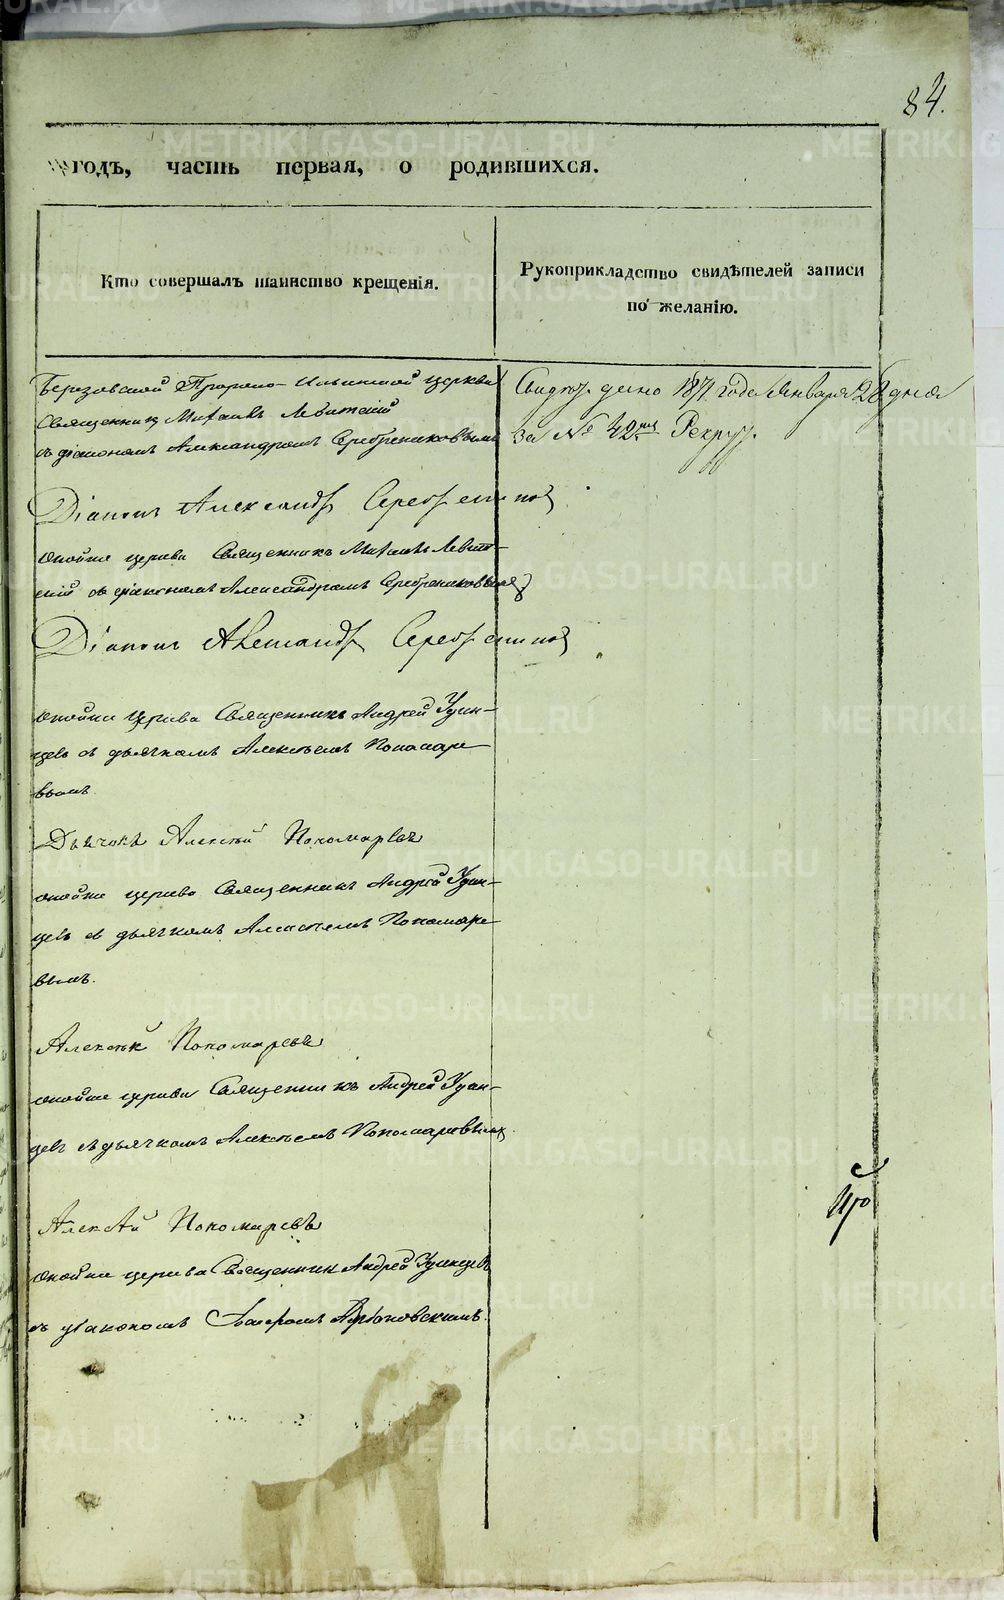 84.
годъ, часть первая, о родившихся.
Кто совершалъ таинство крещенія.
Рукоприкладство свидѣтелей записи
по желанію.
Березовской Пророко-Ильинской церкви
Священникъ Михаилъ Левитскій
съ діакономъ Александромъ Серебрениковымъ
Свидѣт. дано 1871 года Января 28 дня
за № 42мъ Рекрут.
Діаконъ Александръ Серебрениковъ
оной же церкви Священникъ Михаилъ Левит-
скій съ діакономъ Александромъ Серебрениковымъ
Діаконъ Александръ Серебрениковъ
оной же церкви Священникъ Андрей Удин-
цевъ съ дьячкомъ Алексѣемъ Пономаре
вымъ.
Дьячокъ Алексѣй Пономаревъ
оной же церкви Священникъ Андрей Удин-
цевъ съ дьячкомъ Алексѣемъ Пономаре
вымъ.
Алексѣй Пономаревъ
оной же церкви Священникъ Андрей Удин-
цевъ съ дьячкомъ Алексѣемъ Пономаревымъ.
Алексѣй Пономаревъ
оной же церкви Священникъ Андрей Удинцевъ
съ діакономъ
METRIKI.GASO-URAL.RU